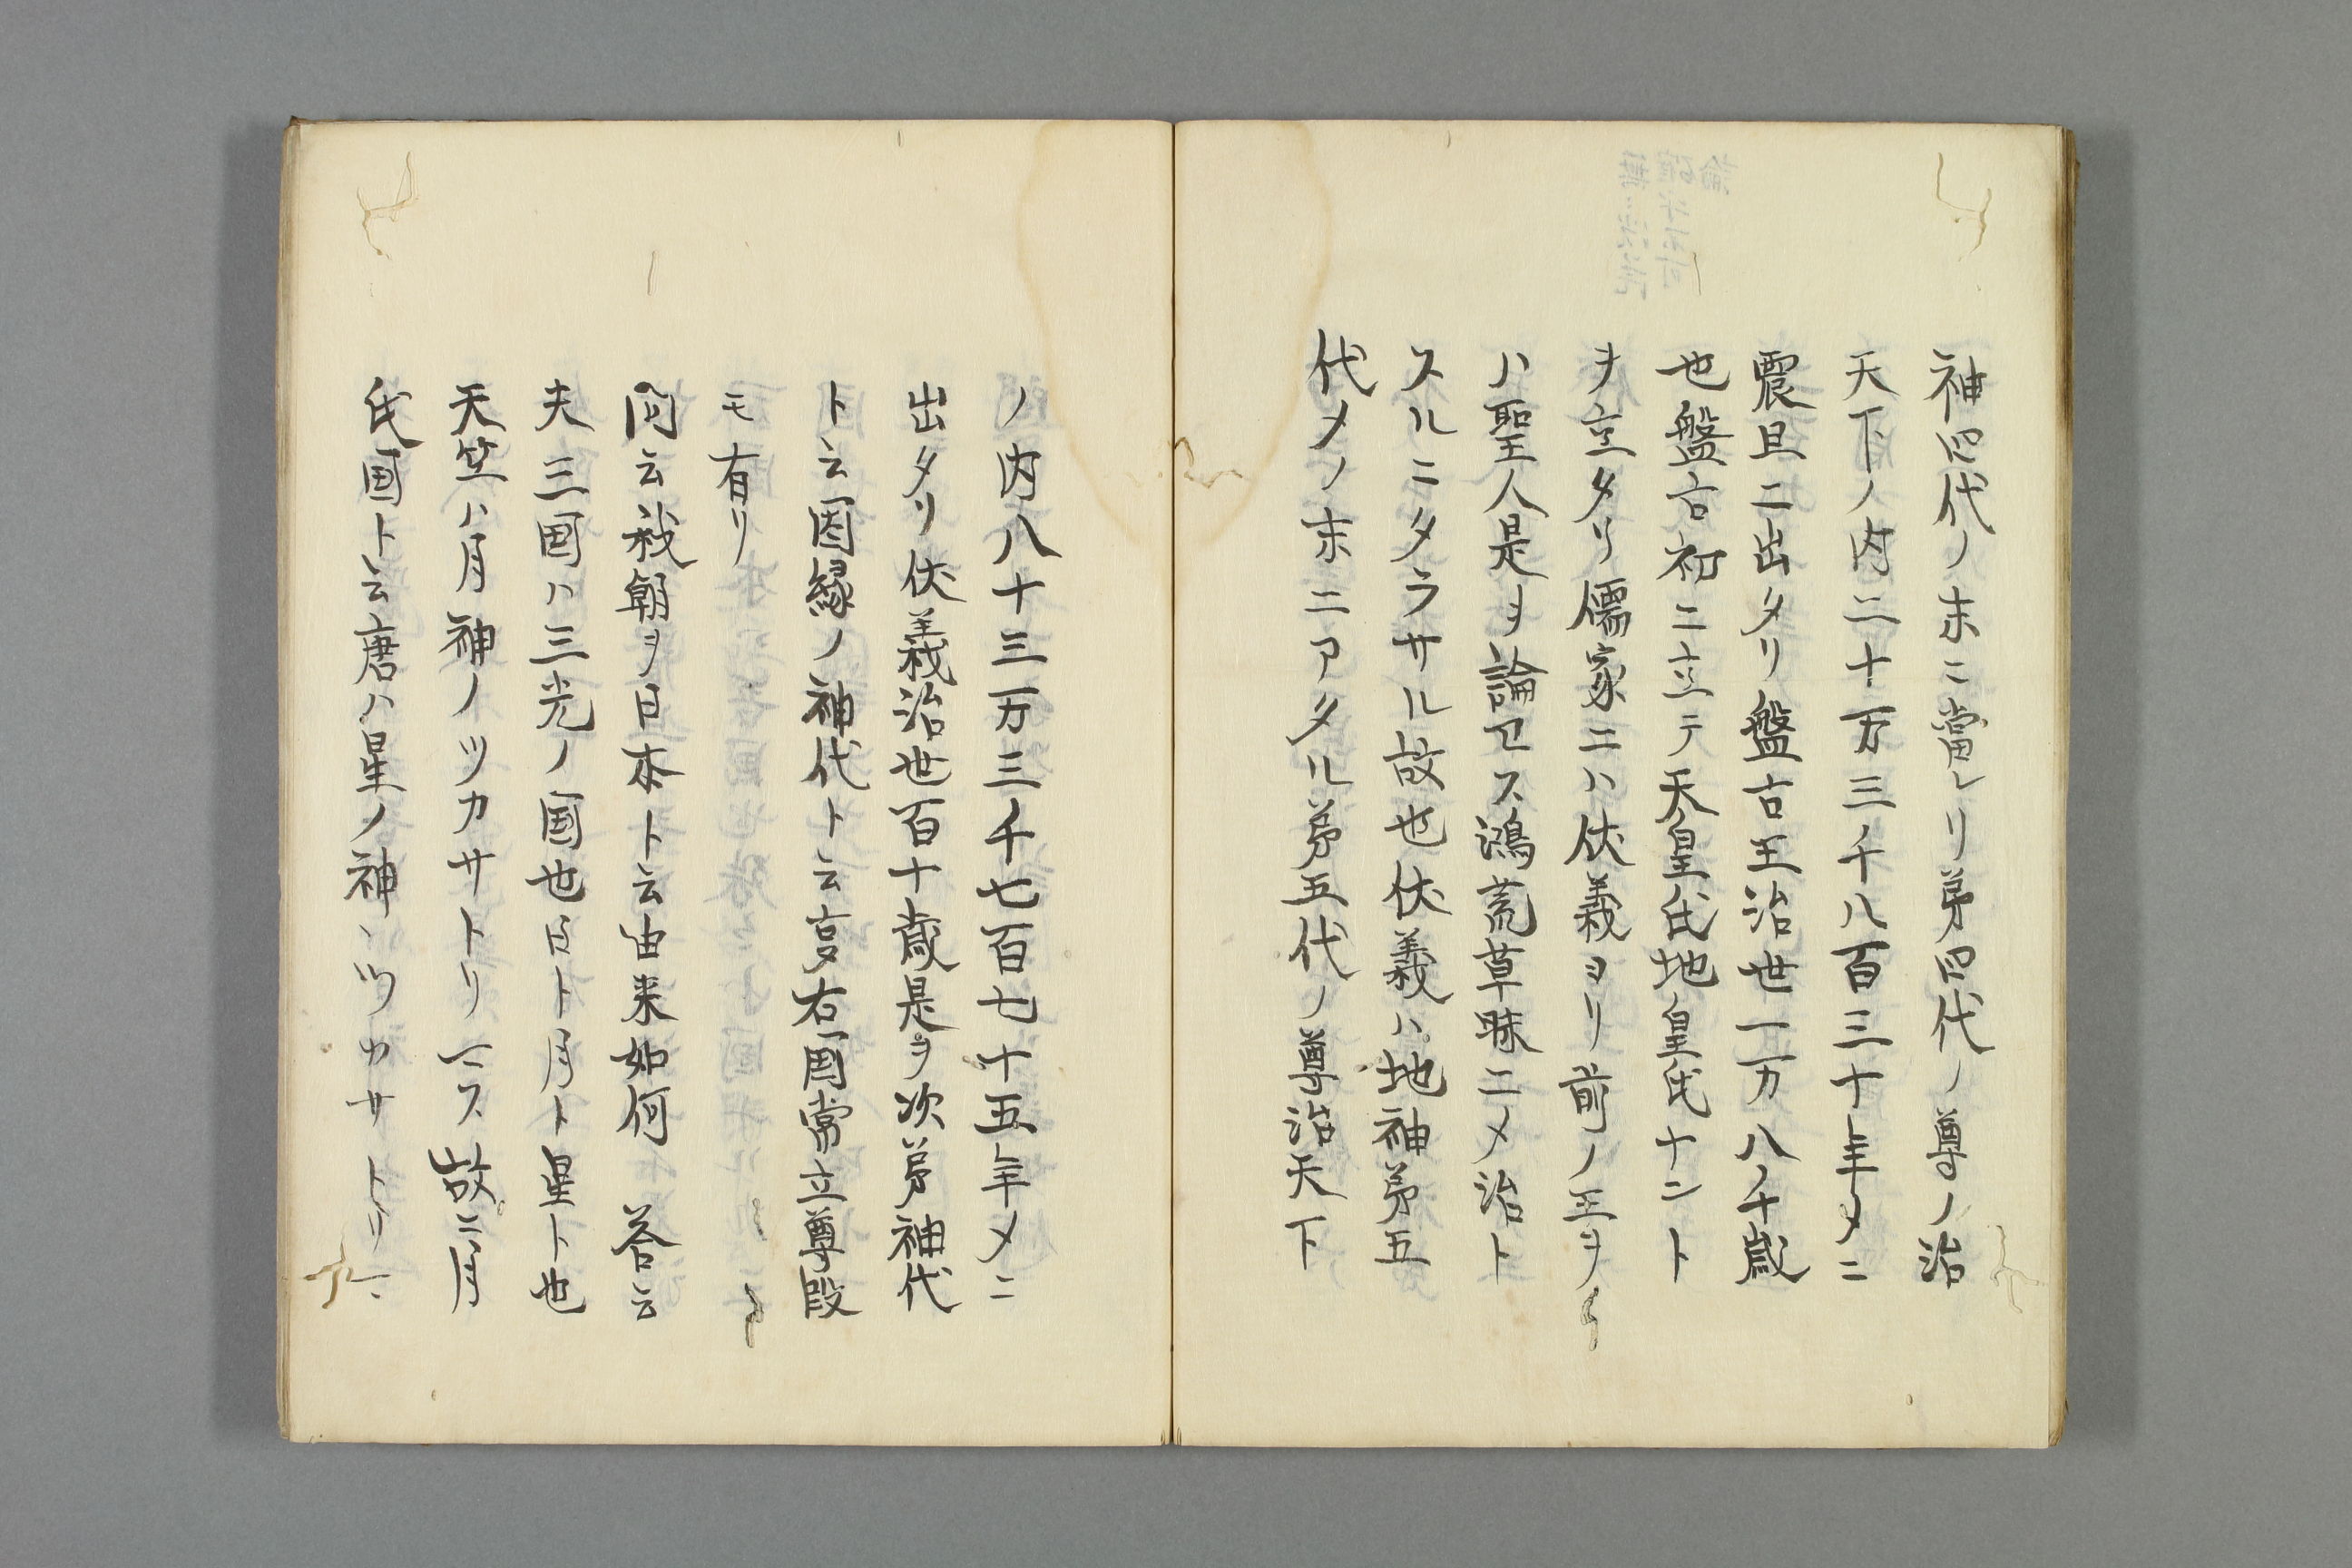 神四代ノ末ニ當レリ第四代ノ尊ノ治
天下ノ内二十万三千八百三十年メニ
震旦ニ出タリ盤古王治世一万八千歳
也盤古初ニ立テ天皇氏地皇氏ナント
ヲ立タリ儒家ニハ伏義ヨリ前ノ王ヲ
ハ聖人是ヲ論セス鴻荒草昧ニメ治ト
スルニタラサル故也伏義ハ地神第五
代メノ末ニアタル第五代ノ尊治天下
ノ内八十三万三千七百七十五年メニ
出タリ伏義治世百十歳是ヲ次第神代
ト云因縁ノ神代ト云亨右国常立尊段
モ有リ
問云我朝ヲ日本ト云由来如何 答云
夫三国ハ三光ノ国也日ト月ト星ト也
天竺ハ月神ノツカサトリ玉ス故ニ月
氏國ト云唐ハ星ノ神ノツカサトリ